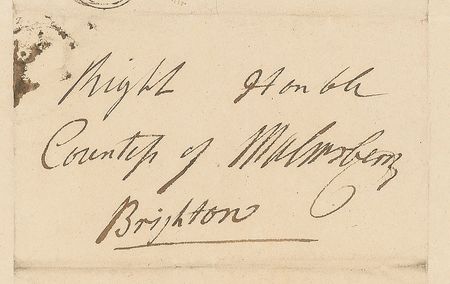 Right Honble
Countess of Malmsbery
Brighton